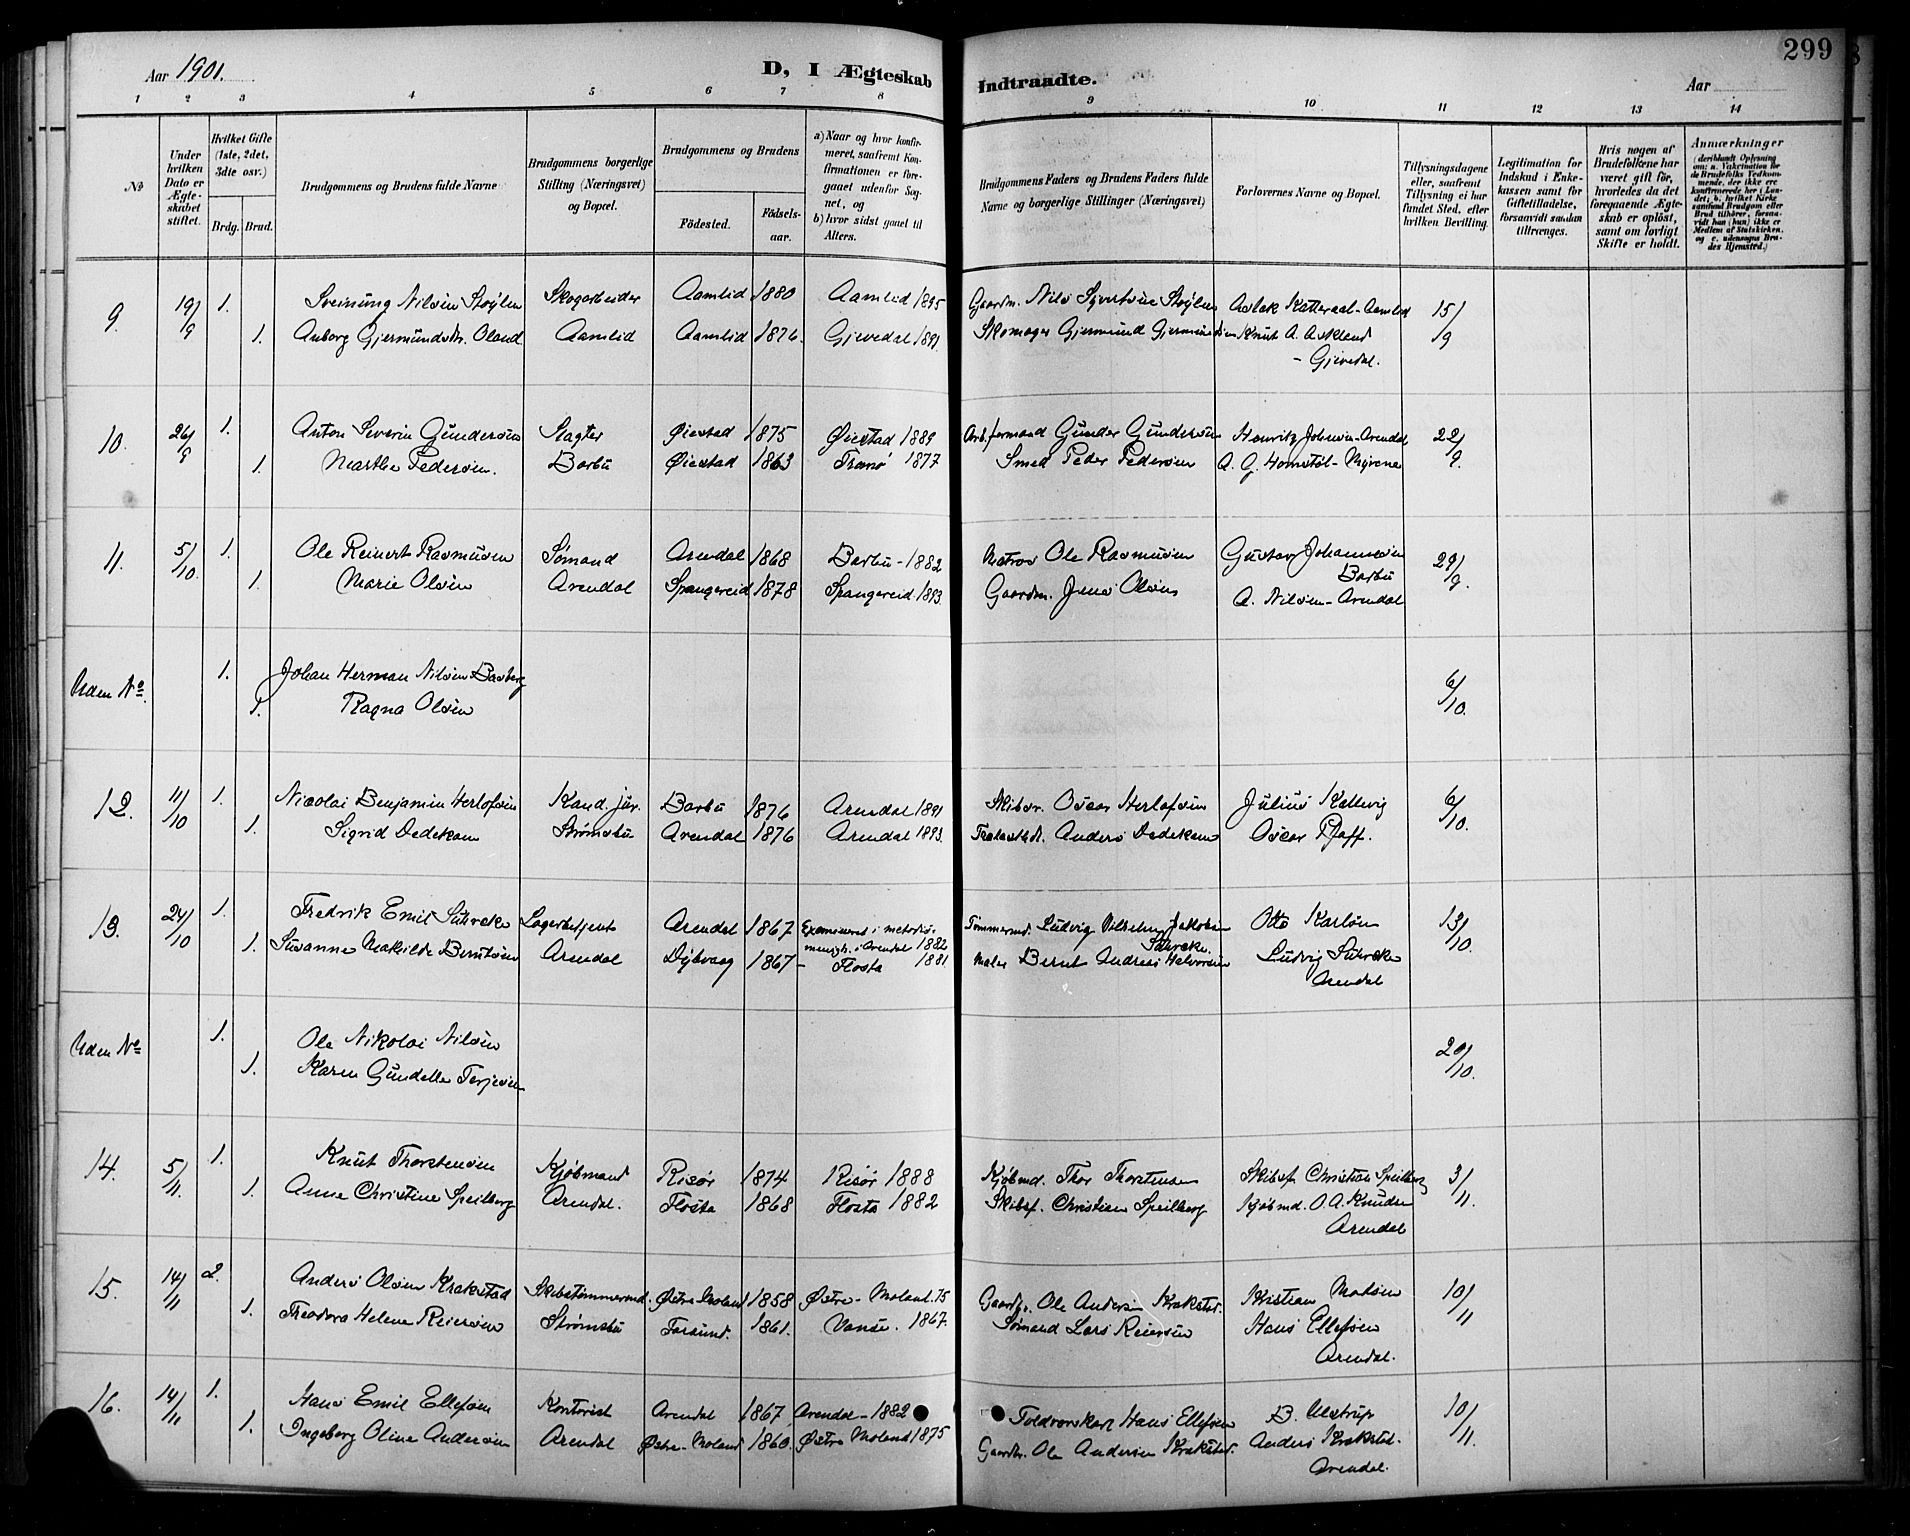 299
Aar 1901.
D, I Ægteskab
Indtraadte.
Aar
1 2 3 4 5 6 7 8 9 10 11 12 13 14
№
Under hvilken Dato er Ægteskabet stiftet.
Hvilket Gifte (1ste, 2det, 3die osv.)
Brdg. Brud.
Brudgommens og Brudens fulde Navne
Brudgommens borgerlige Stilling (Næringsvei) og Bopæl.
Brudgommens og Brudens
Födested. Födsels-aar.
a) Naar og hvor konfirmeret, saafremt Konfirmationen er foregaaet udenfor Sognet, og
b) hvor sidst gaaet til Alters.
Brudgommens Faders og Brudens Faders fulde Navne og borgerlige Stillinger (Næringsvei)
Forlovernes Navne og Bopæl.
Tillysningsdagene eller, saafremt Tillysning ei har fundet Sted, efter hvilken Bevilling.
Legitimation for Indskud i Enkekassen samt for Giftetilladelse, forsaavidt saadan tiltrænges.
Hvis nogen af Brudefolkene har været gift för, hvorledes da det foregaaende Ægteskab er oplöst, samt om lovligt Skifte er holdt.
Anmærkninger
(deriblandt Oplysning om: a. Vakcination for de Brudefolks Vedkommende, der ikke ere konfirmerede her i Landet; b. hvilket Kirkesamfund Brudgom eller Brud tilhörer, forsaavidt han (hun) ikke er Medlem af Statskirken, og c. udensogns Brudes Hjemsted.)
9. 19/9 1. Sveinung Nilsen Støylen Skogarbeider Aamlid 1880 Aamlid 1895 Gaardm. Nils Syvertsen Støylen Aslak Katteraal - Aamlid 15/9
1. Anborg Gjermundsdtr. Oland Aamlid Aamlid 1876. Gjevedal 1891. Skomager Gjermund Gjermundsen Knut A. Askland
- Gjevedal.
10. 26/9 1. Anton Severin Gundersen Slagter Øiestad 1875 Øiestad 1889 Arb.formand Gunder Gundersen Henrik Johnsen - Arendal 22/9.
1. Marthe Pedersen. Barbu Øiestad 1863 Tromø 1877 Smed Peder Pedersen A. G. Homstøl - Myrene
11. 5/10. 1. Ole Reinert Rasmusen Sømand Arendal 1868 Barbu - 1882 Matros Ole Rasmusen Gustav Johannesen 29/9.
Barbu
1. Marie Olsen Arendal Spangereid 1878 Spangereid 1893. Gaardm. Jens Olsen A. Nilsen - Arendal
Uden No. 1. Johan Herman Nilsen Basberg 6/10.
1. Ragna Olsen
12. 11/10 1. Nicolai Benjamin Herlofsen Kand. jur. Barbu 1876 Arendal 1891 Skibsr. Oscar Herlofsen Julius Kallevig 6/10.
1. Sigrid Dedekam Strømsbu Arendal 1876 Arendal 1893. Anders Dedekam Oscar Pfaff.
13. 24/10 1. Fredrik Emil Suhrcke Lagerbetjent Arendal 1867 Examineret i metodist-menigh. i Arendal 1882 Tømmermd. Ludvig Vilhelm Jakobsen Otto Karlsen 13/10.
Suhrcke.
1. Susanne Mathilde Berntsen Arendal Dybvaag 1867 - Flosta 1881. Maler Bernt Andreas Halvorsen Ludvig Suhrcke
Arendal
Uden No 1. Ole Nikolai Nilsen 20/10.
1. Karen Gundelle Terjesen
14. 5/11. 1. Knut Thorstensen Kjøbmand Risør 1874 Risør 1888 Kjøbmd. Thor Thorstensen Skibsf. Christian Speilberg 3/11.
1. Anne Christine Speilberg Arendal. Flosta 1868 Flosta 1882 Skibsf. Christian Speilberg Kjøbmd. O. A. Knudsen
Arendal
15. 14/11 2. Anders Olsen Krakstad Skibstømmermd. Østre Moland 1858 Østre - Moland. 75 Gaardbr. Ole Andersen Krakstad. Kristian Madsen 10/11
1. Theodora Helene Reiersen Strømsbu Farsund. 1861. Vanse. 1867. Sømand Lars Reiersen Hans Ellefsen
Arendal.
16. 14/11 1. Hans Emil Ellefsen Kontorist Arendal 1867 Arendal - 1882 Toldvorskarl Hans Ellefsen B. Ulstrup 10/11.
1. Ingeborg Oline Andersen Arendal Østre - Moland 1860. Østre Moland 1875 Gaardbr. Ole Andersen Krakstad. Anders Krakstad.
Arendal.